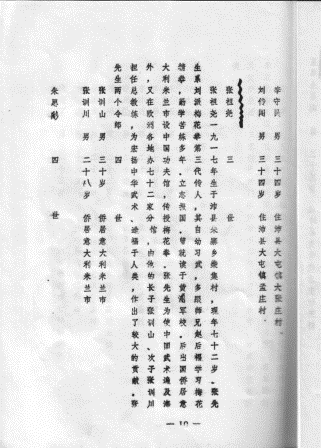 李守民 男 三十四岁 住沛县大屯镇大张庄村
刘传阁 男 三十四岁 住沛县大屯镇孟庄村
张祖尧 三 世
张祖尧一九一七年生于沛县 寨乡 集村，现年七十二岁。张先
生系刘派梅花拳第三代传人，其自幼习武，多跟师兄赵后福学习梅花
拳，勤学苦练多年。立志报国。曾就读于黄浦军校。后出国侨居意
大利米兰市设中国功夫馆，传授梅花拳。张先生为使中国武术遍及海
外，又在欧洲各地办七十二家分馆，由他的长子张训山、次子张训川
担任总教练，为宏扬中华武术、造福于人类，作出了较大的贡献。张
先生两个令郎 四 世
张训山 男 三十岁 侨居意大利米兰市
张训川 男 二十八岁 侨居意大利米兰市
朱思 四 世
— 10 —